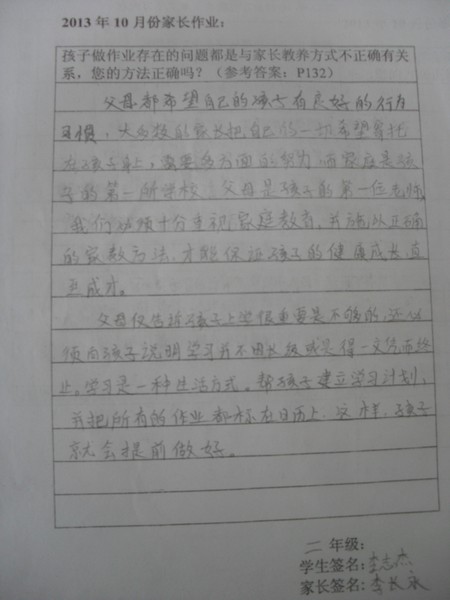 2013 年 10 月份家长作业：
孩子做作业存在的问题都是与家长教养方式不正确有关
系，您的方法正确吗？（参考答案：P132）
父母都希望自己的孩子有良好的行为
习惯，大多数的家长把自己的一切希望寄托
在孩子身上，需要各方面的 而家庭是孩
子的第一所学校，父母是孩子的第一位老师，
我们必须十分重视家庭教育，并确认正确
的家教方法，才能保证孩子的健康成长，直
至成才。
父母仅告诉孩子上学很重要是不够的，还必
须向孩子说明学习并不因长级或是得一文凭而终
止，学习是一种生活方式。帮孩子建立学习计划，
并把所有的作业都标在日历上，这样，孩子
就会提前做好。
二年级：
学生签名：李志杰
家长签名：李长